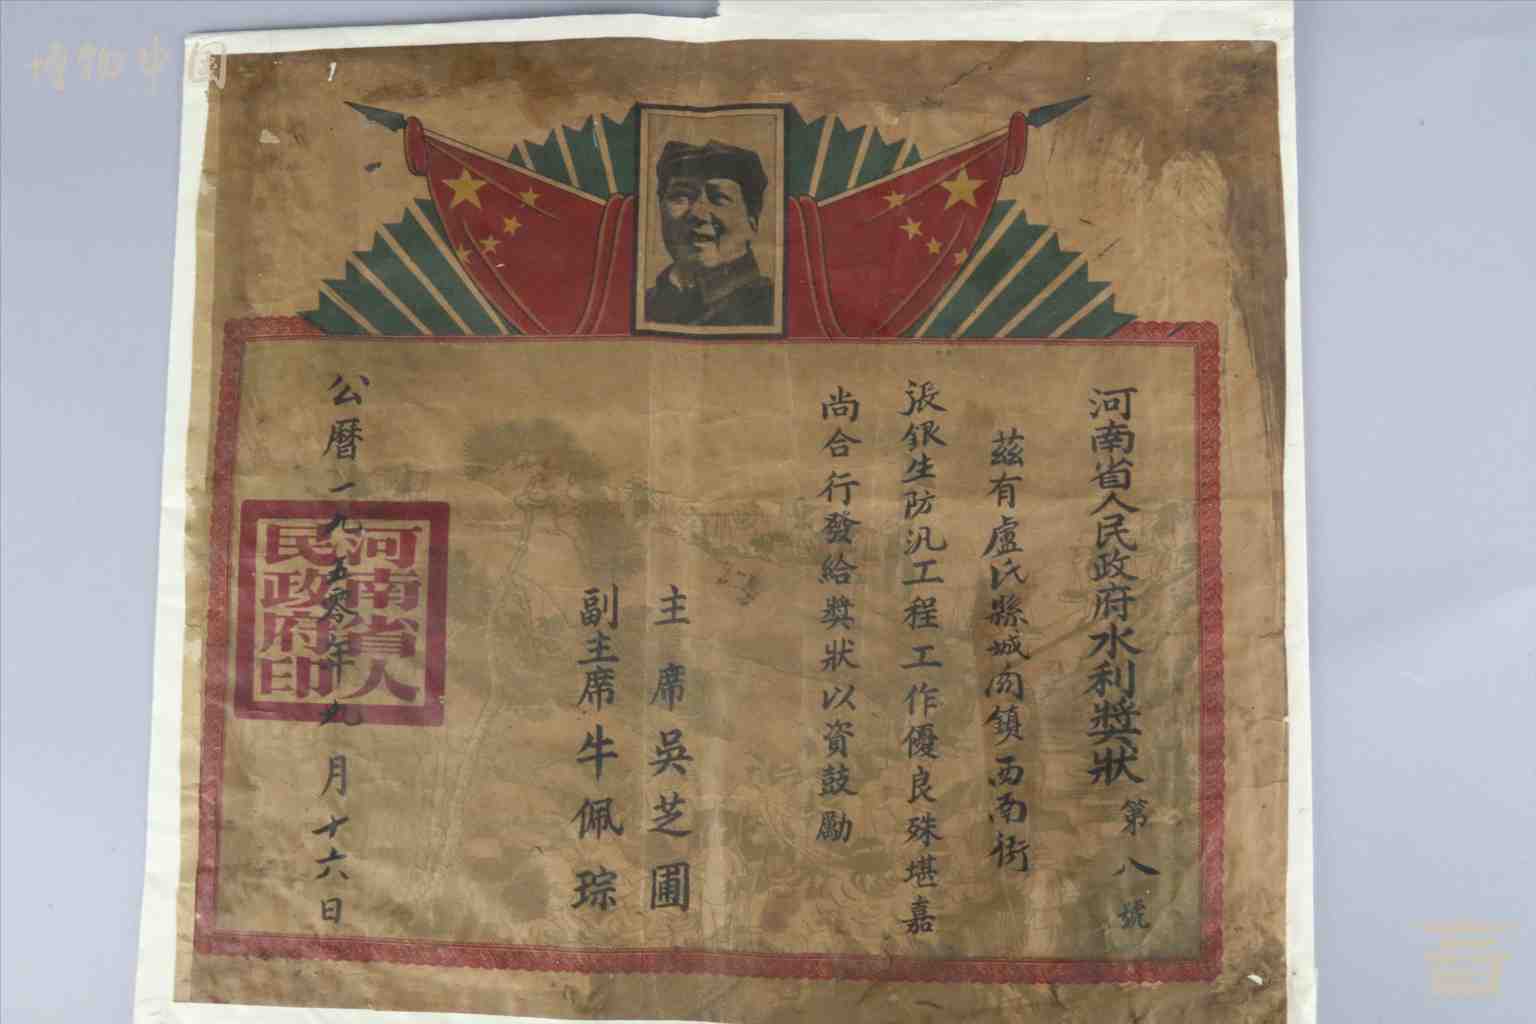 河南省人民政府水利獎狀 第八號
茲有盧氏縣城関鎮西南街
張銀生防汛工程工作優良殊堪嘉
尚合行發給獎狀以資鼓勵
主席吳芝圃
副主席牛佩琮
公曆一九五零年九月十六日
河南省人
民政府印
博物中国